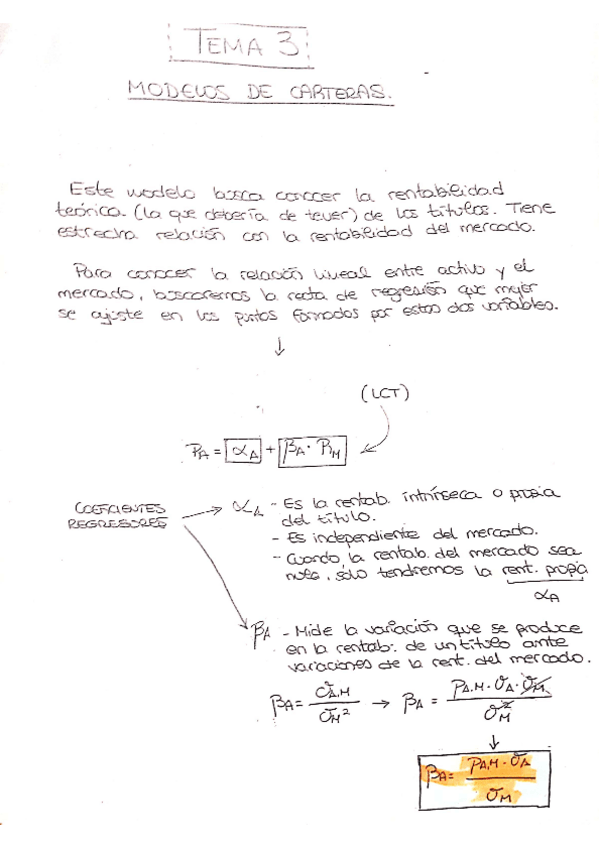 TEMA 3
MODELOS DE CARTERAS.
Este modelo busca conocer la rentabilidad
teórica. (la que debería de tener) de los títulos. Tiene
estrecha relación con la rentabilidad del mercado.
Para conocer la relación lineal entre activo y el
mercado, buscaremos la recta de regresión que mejor
se ajuste en los puntos formados por estas dos variables.
↓
(LCT)
RA = αA + βA · RM
COEFICIENTES
REGRESORES
→ αA - Es la rentab. intrínseca o propia
del título.
- Es independiente del mercado.
- Cuando la rentab. del mercado sea
nula, sólo tendremos la rent. propia
αA
βA - Mide la variación que se produce
en la rentab. de un título ante
variaciones de la rent. del mercado.
βA = σA,M / σM² → βA = ρA,M · σA · σM / σM²
↓
βA = ρA,M · σA / σM